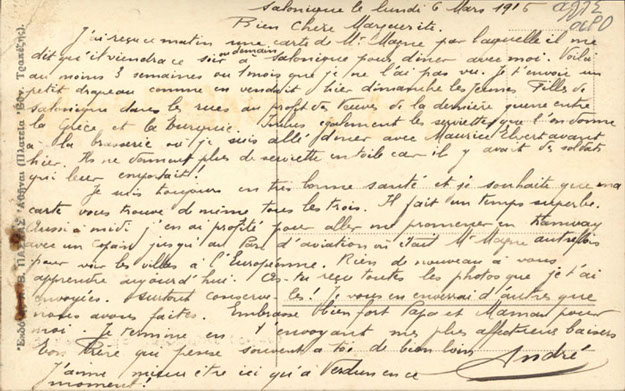 Salonique le lundi 6 Mars 1916
Bien Chère Marguerite.
J'ai reçu ce matin une carte de Mr Mayne par laquelle il me
dit qu'il viendra ce soir ou demain à Salonique pour diner avec moi. Voilà
au moins 3 semaines ou 1 mois que je ne l'ai pas vu. Je t'envoie un
petit drapeau comme en vendait hier dimanche les jeunes filles de
Salonique dans les rues au profit des veuves de la dernière guerre entre
la Grèce et la Turquie. Inclus également les serviettes que l'on donne
à la brasserie où je suis allé diner avec Maurice avant
hier. Ils ne donnent plus de serviette en toile car il y avait des soldats
qui leur emportait!
Je suis toujours en très bonne santé et je souhaite que ma
carte vous trouve de même tous les trois. Il fait un temps superbe.
Aussi à midi j'en ai profité pour aller me promener en tramway
avec un copain jusqu'au Parc d'aviation où était Mr Mayne autrefois
pour voir les villas à l'Européenne. Rien de nouveau à vous
apprendre aujourd'hui. As-tu reçu toutes les photos que je t'ai
envoyées. Surtout conserve-les! Je vous en enverrai d'autres que
nous avons faites. Embrasse bien fort Papa et Maman pour
moi. Je termine en t'envoyant mes plus affectueux baisers
Ton Frère qui pense souvent à toi de bien loin
André
J'aime mieux être ici qu'à Verdun en ce
moment!
Αθήναι (Πλατεία Εθν. Τραπέζης).